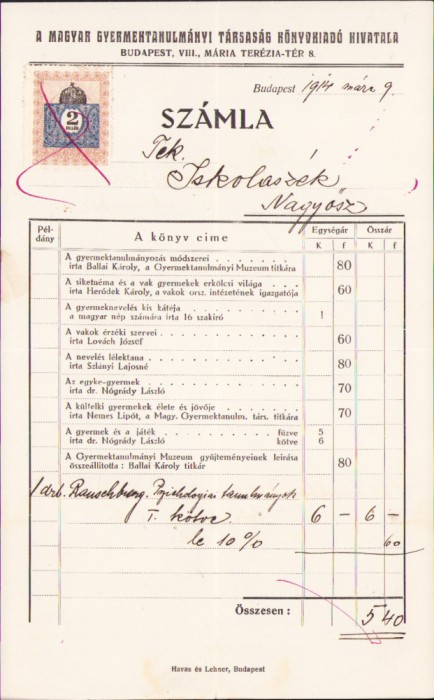 A MAGYAR GYERMEKTANULMÁNYI TÁRSASÁG KÖNYVKIADÓ HIVATALA
BUDAPEST, VIII., MÁRIA TERÉZIA-TÉR 8.
2
FILLÉR
Budapest 1914 márc 9.
SZÁMLA
Tek.
Iskolaszék
Nagyősz
Példány A könyv címe Egységár Összár
K f K f
A gyermektanulmányozás módszerei
írta Ballai Károly, a Gyermektanulmányi Muzeum titkára 80
A siketnéma és a vak gyermekek erkölcsi világa
írta Heródek Károly, a vakok orsz. intézetének igazgatója 60
A gyermeknevelés kis kátéja
a magyar nép számára írta 16 szakíró 1
A vakok érzéki szervei
írta Lovách József 60
A nevelés lélektana
írta Szlányi Lajosné 80
Az egyke-gyermek
írta dr. Nógrády László 70
A kültelki gyermekek élete és jövője
írta Nemes Lipót, a Magy. Gyermektanulm. társ. titkára 70
A gyermek és a játék fűzve 5
írta dr. Nógrády László kötve 6
A Gyermektanulmányi Muzeum gyüjteményeinek leírása
összeállította: Ballai Károly titkár 80
1 drb. Ranschburg. Psichologiai tanulmányok
I. kötve. 6 – 6 –
le 10% 60
Összesen: 5 40
Havas és Lehner, Budapest